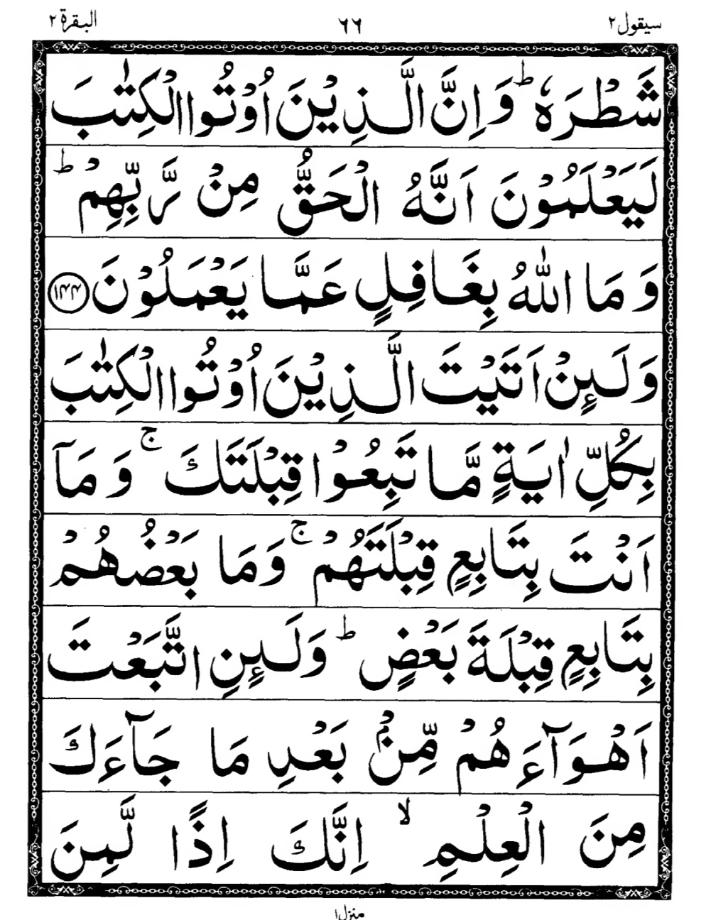 سيقول٢ ٦٦ البقرة٢
شَطْرَهٗ ؕ وَاِنَّ الَّذِيْنَ اُوْتُوا الْكِتٰبَ
لَيَعْلَمُوْنَ اَنَّهُ الْحَقُّ مِنْ رَّبِّهِمْ ؕ
وَمَا اللّٰهُ بِغَافِلٍ عَمَّا يَعْمَلُوْنَ ﴿۱۴۴﴾
وَلَىِٕنْ اَتَيْتَ الَّذِيْنَ اُوْتُوا الْكِتٰبَ
بِكُلِّ اٰيَةٍ مَّا تَبِعُوْا قِبْلَتَكَ ۚ وَمَآ
اَنْتَ بِتَابِعٍ قِبْلَتَهُمْ ۚ وَمَا بَعْضُهُمْ
بِتَابِعٍ قِبْلَةَ بَعْضٍ ؕ وَلَىِٕنِ اتَّبَعْتَ
اَهْوَآءَهُمْ مِّنْۢ بَعْدِ مَا جَآءَكَ
مِنَ الْعِلْمِ ۙ اِنَّكَ اِذًا لَّمِنَ
منزل۱